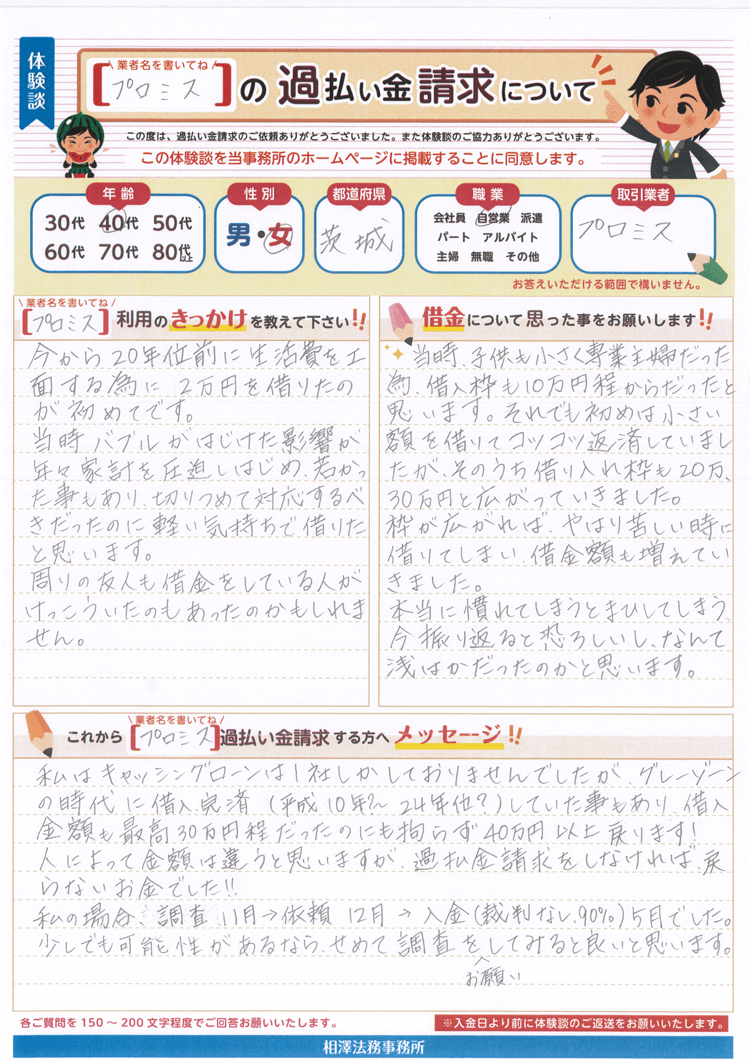 体験談
\ 業者名を書いてね /
[プロミス]の過払い金請求について
この度は、過払い金請求のご依頼ありがとうございました。また体験談のご協力ありがとうございます。
この体験談を当事務所のホームページに掲載することに同意します。
年齢
30代 40代 50代
60代 70代 80代以上
性別
男・女
都道府県
茨城
職業
会社員 自営業 派遣
パート アルバイト
主婦 無職 その他
取引業者
プロミス
お答えいただける範囲で構いません。
\ 業者名を書いてね /
[プロミス]利用のきっかけを教えて下さい!!
今から20年位前に生活費を工
面する為に 2万円を借りたの
が初めてです。
当時バブルがはじけた影響が
年々家計を圧迫しはじめ、若かっ
た事もあり、切りつめて対応するべ
きだったのに軽い気持ちで借りた
と思います。
周りの友人も借金をしている人が
けっこういたのもあったのかもしれま
せん。
借金について思った事をお願いします!!
当時、子供も小さく専業主婦だった
為、借入枠も10万円程からだったと
思います。それでも初めは小さい
額を借りてコツコツ返済していまし
たが、そのうち借り入れ枠も20万、
30万円と広がっていきました。
枠が広がれば、やはり苦しい時に
借りてしまい、借金額も増えてい
きました。
本当に慣れてしまうとまひしてしまう、
今振り返ると恐ろしいし、なんて
浅はかだったのかと思います。
\ 業者名を書いてね /
これから[プロミス]過払い金請求する方へメッセージ!!
私はキャッシングローンは1社しかしておりませんでしたが、グレーゾーン
の時代に借入、完済(平成10年?〜24年位?)していた事もあり、借入
金額も最高30万円程だったのにも拘らず40万円以上戻ります!
人によって金額は違うと思いますが、過払金請求をしなければ、戻
らないお金でした!!
私の場合、調査 11月→依頼 12月→入金(裁判なし、90%)5月でした。
少しでも可能性があるなら、せめて調査をしてみると良いと思います。
お願い
各ご質問を150〜200文字程度でご回答お願いいたします。
※入金日より前に体験談のご返送をお願いいたします。
相澤法務事務所